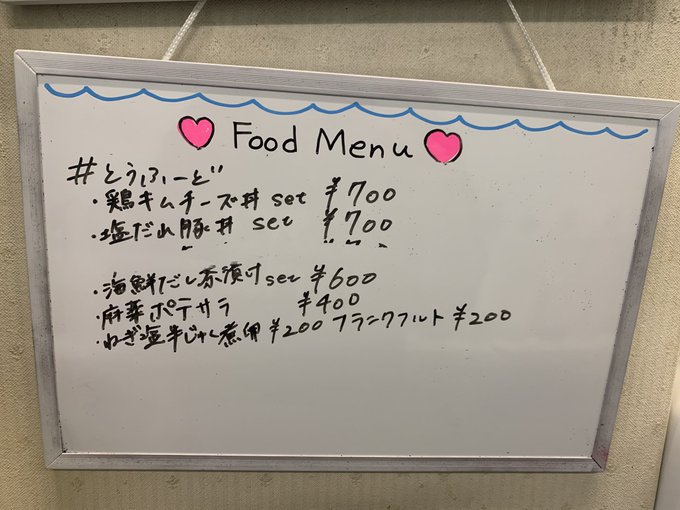 Food Menu
#とうふーど
・鶏キムチーズ丼 set ¥700
・塩だれ豚丼 set ¥700
・海鮮だし茶漬け set ¥600
・麻薬ポテサラ ¥400
・ねぎ塩牛じゃく煮 ¥200 フランクフルト ¥200